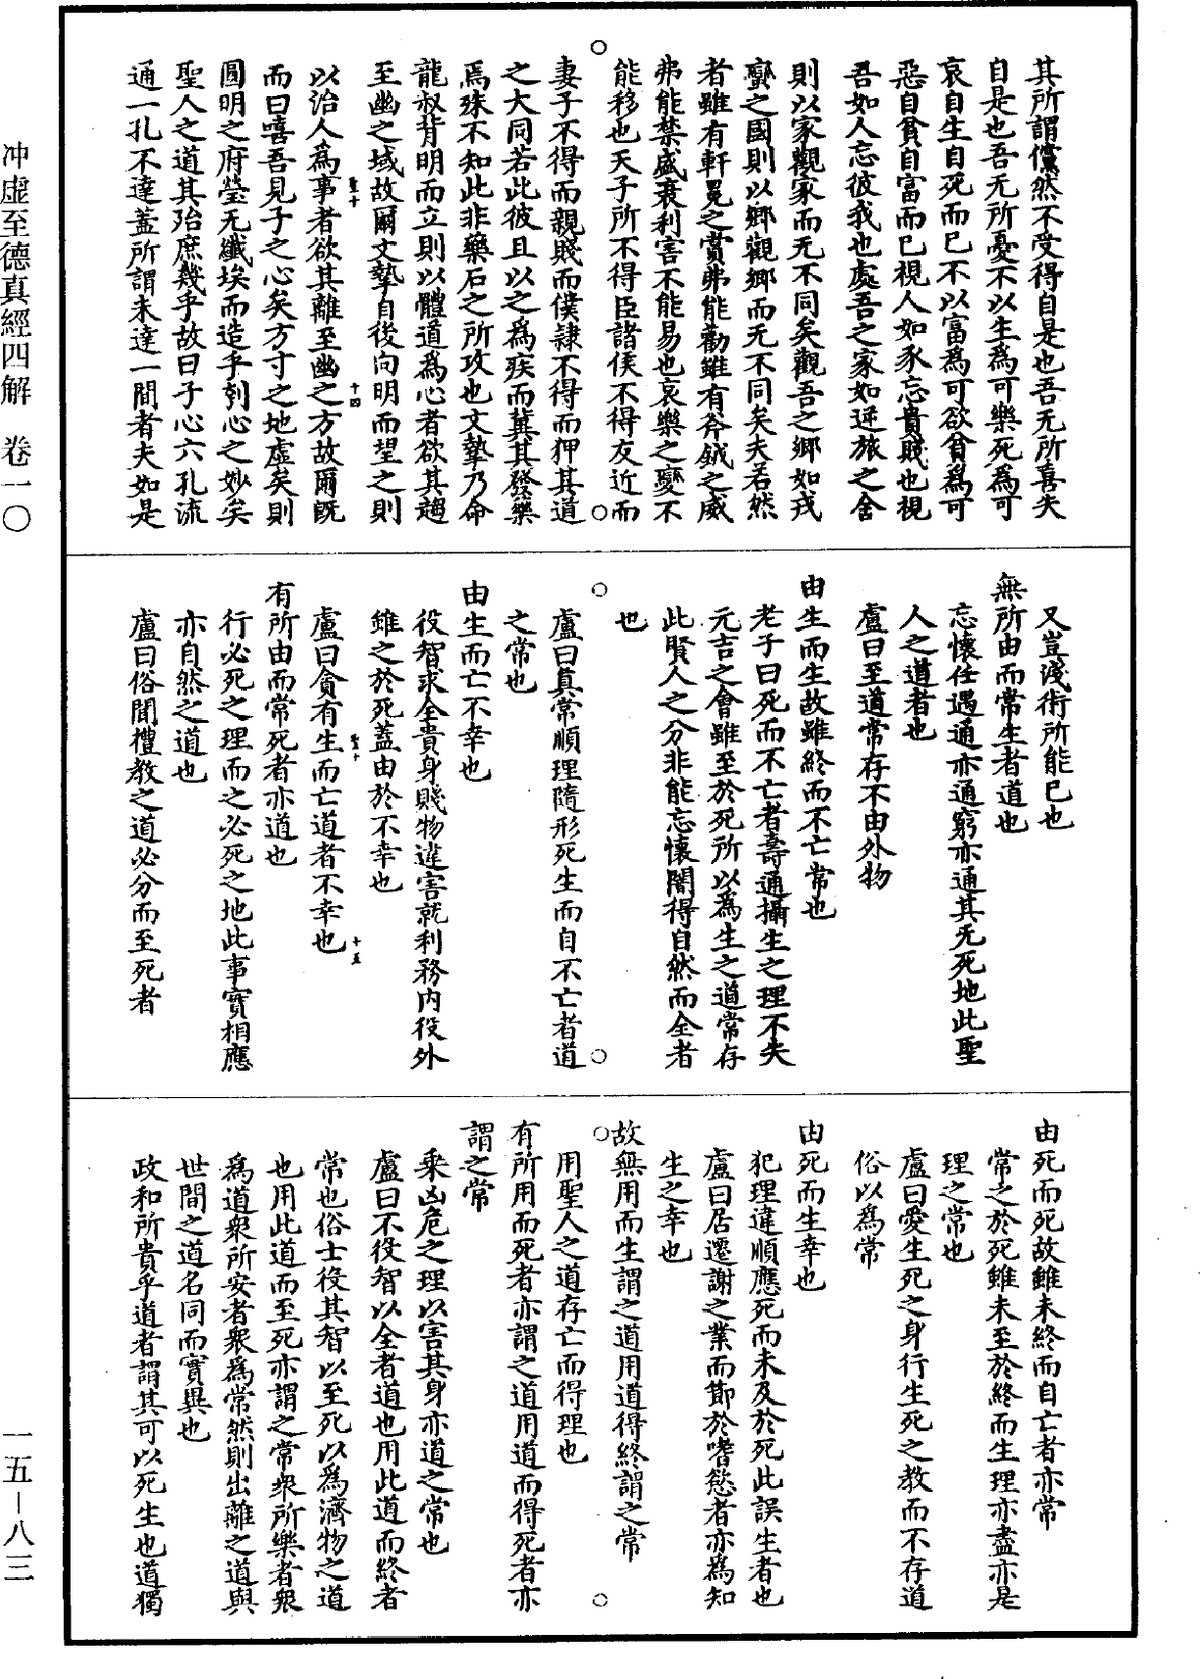 其所謂儻然不受得自是也吾无所喜失
自是也吾无所憂不以生爲可樂死爲可
哀自生自死而已不以富爲可欲貧爲可
惡自貧自富而已視人如豕忘貴賤也視
吾如人忘彼我也處吾之家如逆旅之舍
則以家觀家而无不同矣觀吾之鄉如戎
蠻之國則以鄉觀鄉而无不同矣夫若然
者雖有軒冕之賞弗能勸雖有斧鉞之威
弗能禁盛衰利害不能易也哀樂之變不
能移也天子所不得臣諸侯不得友近而
妻子不得而親賤而僕隸不得而狎其道
之大同若此彼且以之爲疾而冀其發藥
焉殊不知此非藥石之所攻也文摯乃命
龍叔背明而立則以體道爲心者欲其趨
至幽之域故爾文摯自後向明而望之則
以治人爲事者欲其離至幽之方故爾既
而曰嘻吾見子之心矣方寸之地虛矣則
圓明之府瑩无纖埃而造乎刳心之妙矣
聖人之道其殆庶幾乎故曰子心六孔流
通一孔不達蓋所謂未達一間者夫如是
又豈淺術所能已也
無所由而常生者道也
忘懷任遇通亦通窮亦通其无死地此聖
人之道者也
盧曰至道常存不由外物
由生而生故雖終而不亡常也
老子曰死而不亡者壽通攝生之理不失
元吉之會雖至於死所以爲生之道常存
此賢人之分非能忘懷闇得自然而全者
也
盧曰真常順理隨形死生而自不亡者道
之常也
由生而亡不幸也
役智求全貴身賤物違害就利務内役外
雖之於死蓋由於不幸也
盧曰貪有生而亡道者不幸也
有所由而常死者亦道也
行必死之理而之必死之地此事實相應
亦自然之道也
盧曰俗聞禮教之道必分而至死者
由死而死故雖未終而自亡者亦常
常之於死雖未至於終而生理亦盡亦是
理之常也
盧曰愛生死之身行生死之教而不存道
俗以爲常
由死而生幸也
犯理違順應死而未及於死此誤生者也
盧曰居遷謝之業而節於嗜慾者亦爲知
生之幸也
故無用而生謂之道用道得終謂之常
用聖人之道存亡而得理也
有所用而死者亦謂之道用道而得死者亦
謂之常
乘凶危之理以害其身亦道之常也
盧曰不役智以全者道也用此道而終者
常也俗士役其智以至死以爲濟物之道
也用此道而至死亦謂之常衆所樂者衆
爲道衆所安者衆爲常然則出離之道與
世間之道名同而實異也
政和所貴乎道者謂其可以死生也道獨
聖十
十四
聖十
十五
冲虛至德真經四解 卷一〇
一五—八三